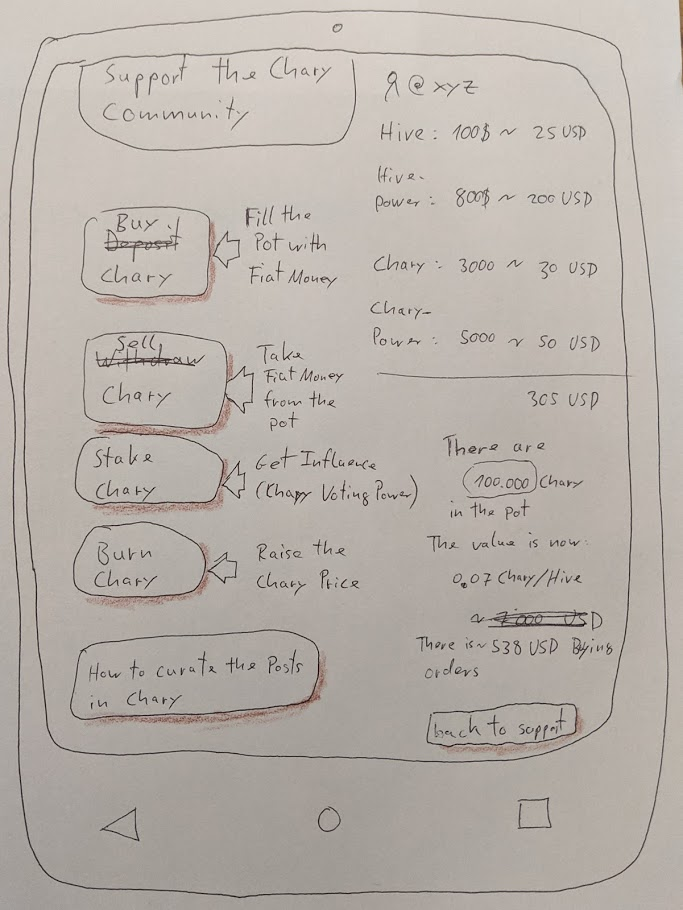 Support the Chary
Community
@xyz
Hive: 100$ ~ 25 USD
Hive-
power: 800$ ~ 200 USD
Chary: 3000 ~ 30 USD
Chary-
Power: 5000 ~ 50 USD
305 USD
There are
100.000 Chary
in the pot
The value is now:
0.07 Chary/Hive
~ 7.000 USD
There is ~ 538 USD Buying
orders
back to support
Buy
Deposit
Chary
Fill the
Pot with
Fiat Money
Sell
Withdraw
Chary
Take
Fiat Money
from the
pot
Stake
Chary
Get Influence
(Chary Voting Power)
Burn
Chary
Raise the
Chary Price
How to curate the Posts
in Chary